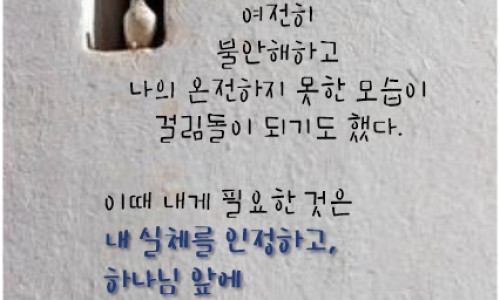 여전히
불안해하고
나의 온전하지 못한 모습이
걸림돌이 되기도 했다.
이때 내게 필요한 것은
내 실체를 인정하고,
하나님 앞에